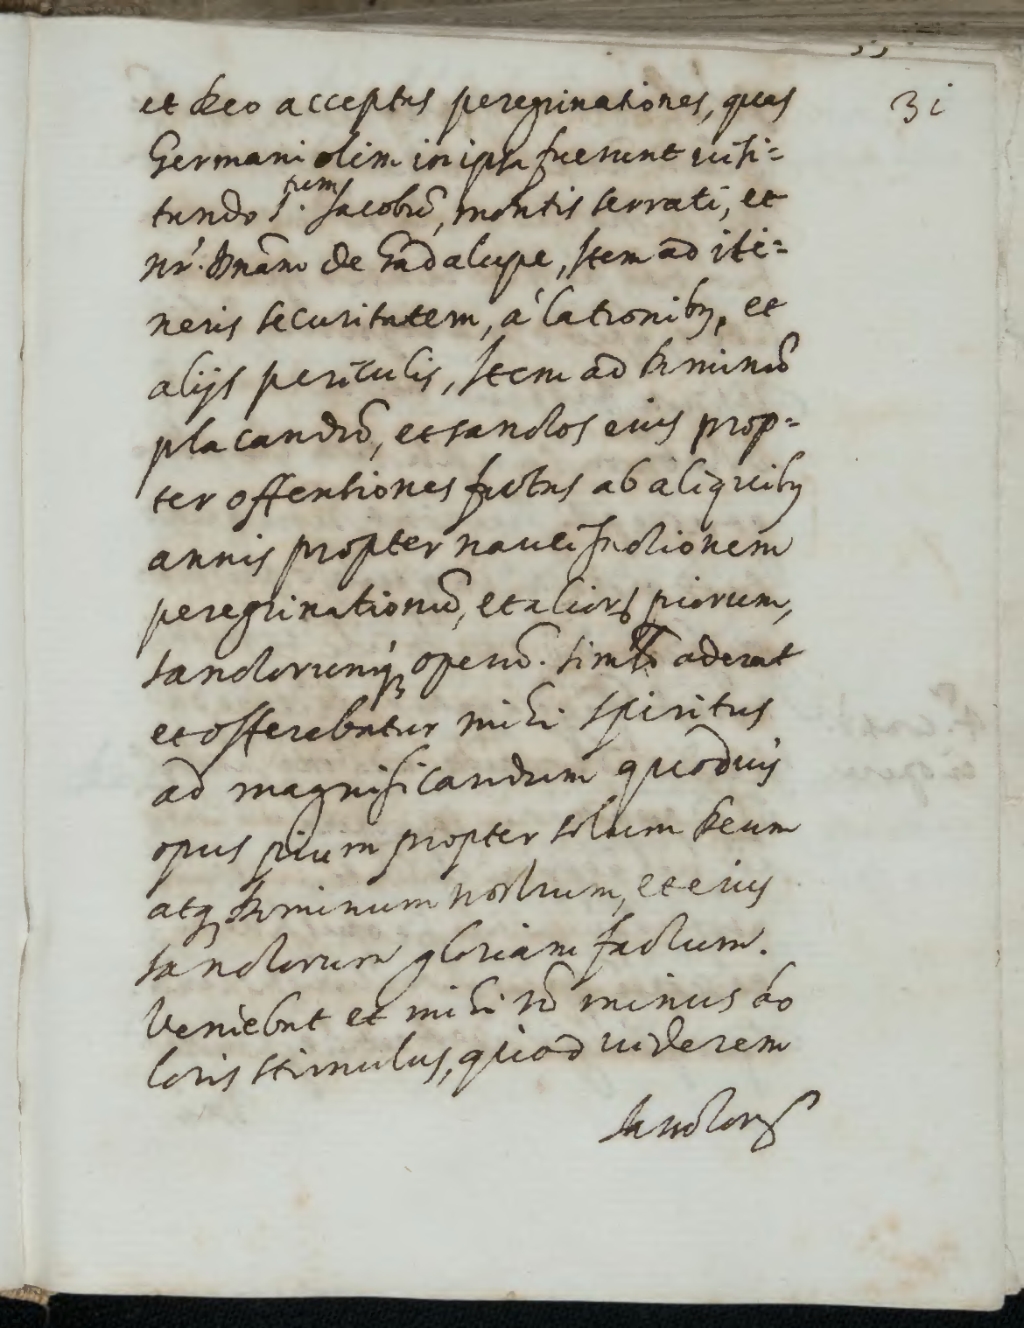 31
et Deo acceptas peregrinationes, quas
Germani olim in ipsa fuerunt visi=
tando S.tum Jacobū, montis serrati, et
nr̃. Dnãm de Guadalupe, Item ad iti=
neris securitatem, à latronibꝫ, et
alijs periculis, Item ad Dominū
placandū, et sanctos eius prop=
ter offensiones factas ab aliquibꝫ
annis propter
peregrinationū, et aliorꝝ piorum,
sanctorumqꝫ operū. aderat
et offerebatur mihi spiritus
ad magnificandum quodvis
opus pium propter solum Deum
atqꝫ Dominum nostrum, et eius
sanctorum gloriam factum.
Veniebat et mihi nō minus do
loris stimulus, quod viderem
sanctorꝝ